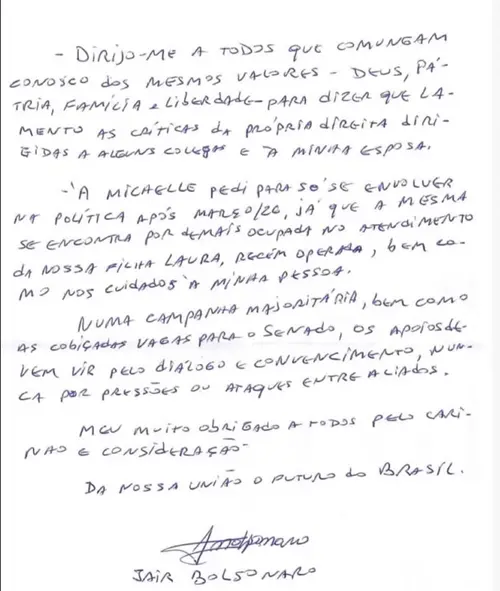 - DIRIJO-ME A TODOS QUE COMUNGAM
CONOSCO DOS MESMOS VALORES - DEUS, PÁ-
TRIA, FAMÍLIA E LIBERDADE - PARA DIZER QUE LA-
MENTO AS CRÍTICAS DA PRÓPRIA DIREITA DIRI-
GIDAS A ALGUNS COLEGAS E À MINHA ESPOSA.
- À MICHELLE PEDI PARA SÓ SE ENVOLVER
NA POLÍTICA APÓS MARÇO/26, JÁ QUE A MESMA
SE ENCONTRA POR DEMAIS OCUPADA NO ATENDIMENTO
DA NOSSA FILHA LAURA, RECÉM OPERADA, BEM CO-
MO NOS CUIDADOS À MINHA PESSOA.
NUMA CAMPANHA MAJORITÁRIA, BEM COMO
AS COBIÇADAS VAGAS PARA O SENADO, OS APOIOS DE-
VEM VIR PELO DIÁLOGO E CONVENCIMENTO, NUN-
CA POR PRESSÕES OU ATAQUES ENTRE ALIADOS.
MEU MUITO OBRIGADO A TODOS PELO CARI-
NHO E CONSIDERAÇÃO.
DA NOSSA UNIÃO O FUTURO DO BRASIL.
JAIR BOLSONARO